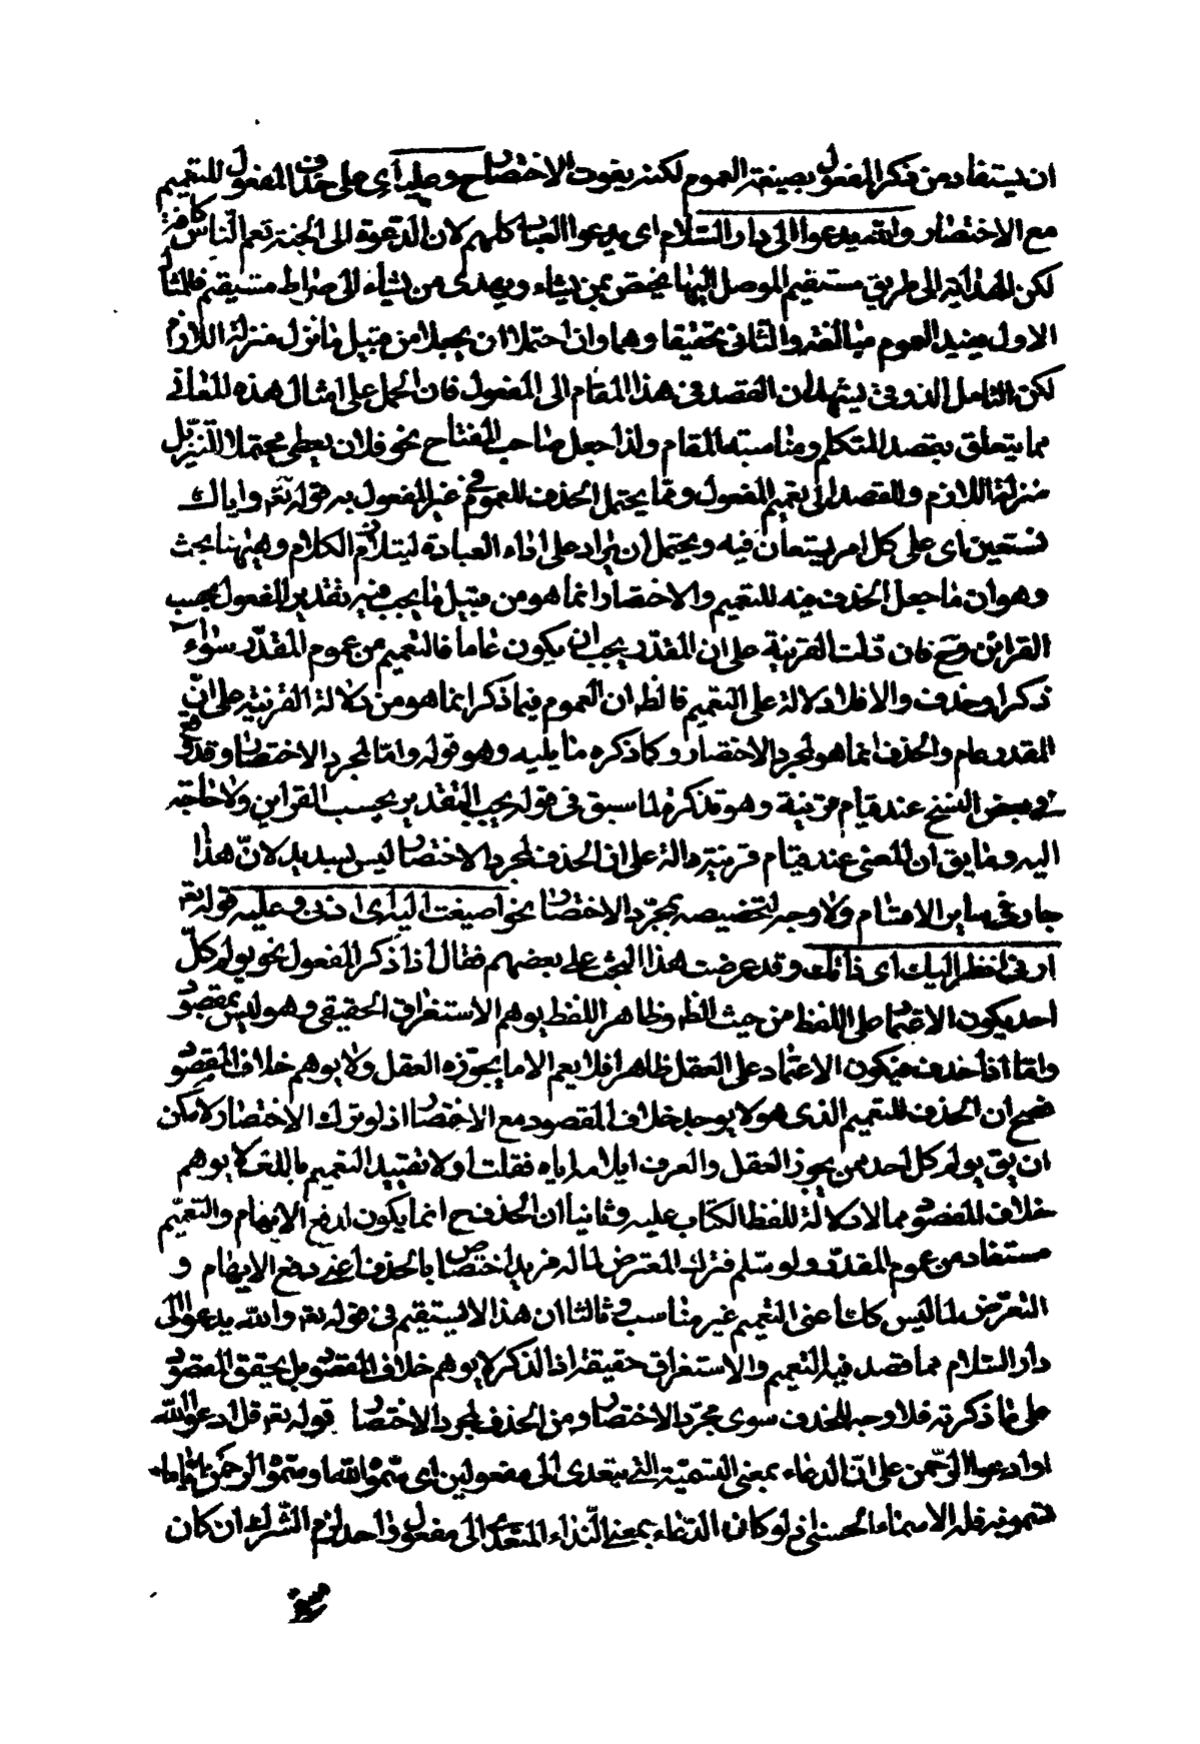 ان يستفاد من ذكر المفعول بصيغة العموم لكنه يفوت الاختصار ح وعليه اى على حذف المفعول للتعميم
مع الاختصار والله يدعوا الى دار السلام اى يدعوا العباد كلهم لان الدعوة الى الجنة تعم الناس كافة
لكن الهداية الى طريق مستقيم الموصل اليها يختص بمن يشاء ويهدى من يشاء الى صراط مستقيم فالمثال
الاول يفيد العموم مبالغة والثانى تحقيقا وهما وان احتملا ان يجعلا من قبيل ما نزل منزلة اللازم
لكن التامل الذوقى يشهد ان القصد فى هذا المقام الى المفعول فان الحمل على امثال هذه المعانى
مما يتعلق بقصد المتكلم ومناسبة المقام ولذا جعل صاحب المفتاح نحو فلان يعطى محتملا للتنزيل
منزلة اللازم وللقصد الى تعميم المفعول ومما يحتمل الحذف للعموم فى غير المفعول به قوله تع واياك
نستعين اى على كل امر يستعان فيه ويحتمل ان يراد على اداء العبادة ليتلائم الكلام وههنا بحث
وهو ان ما جعل الحذف فيه للتعميم والاختصار انما هو من قبيل ما يجب فيه تقدير المفعول بحسب
القرائن وح فان دلت القرينة على ان المقدر يجب ان يكون عاما فالتعميم من عموم المقدر سواء
ذكر او حذف والا فلا دلالة على التعميم فالظ ان العموم فيما ذكر انما هو من دلالة القرينة على ان
المقدر عام والحذف انما هو لمجرد الاختصار وكما ذكره ما يليه وهو قوله واما لمجرد الاختصار وقد وقع
فى بعض النسخ عند قيام قرينة وهو تذكرة لما سبق فى قوله يجب التقدير بحسب القراين ولا حاجة
اليه وما يق ان المعنى عند قيام قرينة دالة على ان الحذف لمجرد الاختصار ليس بسديد لان هذا
جار فى ساير الاقسام ولا وجه لتخصيصه بمجرد الاختصار نحو اصغيت اليه اى اذنى وعليه قوله تع
ارنى انظر اليك اى ذاتك وقد عرضت هذا البحث على بعضهم فقال اذا ذكر المفعول نحو يولم كل
احد يكون الاعتماد على اللفظ من حيث الظ وظاهر اللفظ يوهم الاستغراق الحقيقى وهو ليس بمقصود
واما اذا حذف فيكون الاعتماد على العقل ظاهرا فلا يعم الا ما يجوزه العقل ولا يوهم خلاف المقصود
فصح ان الحذف للتعميم الذى هو لا يوجد خلاف المقصود مع الاختصار اذ لو ترك الاختصار لامكن
ان يق يولم كل احد ممن يجوز العقل والعرف ايلامه اياه فقلت اولا تقييد التعميم بالذى لا يوهم
خلاف المقصود مما لا دلالة للفظ الكتاب عليه وثانيا ان الحذف ح انما يكون لدفع الايهام والتعميم
مستفاد من عموم المقدر ولو سلم فترك المعترض لما له مزيد اختصاص بالحذف اعنى دفع الايهام و
التعرض لما ليس كك اعنى التعميم غير مناسب وثالثا ان هذا لا يستقيم فى قوله تع والله يدعوا الى
دار السلام مما قصد فيه التعميم والاستغراق حقيقة اذ الذكر لا يوهم خلاف المقصود بل يحقق المقصود
على ما ذكرته فلا وجه للحذف سوى مجرد الاختصار ومن الحذف لمجرد الاختصار قوله تع قل ادعوا الله
او ادعوا الرحمن على ان الدعاء بمعنى التسمية التى يتعدى الى مفعولين اى سموه الله او سموه الرحمن اياما
تسموه فله الاسماء الحسنى اذ لو كان الدعاء بمعنى النداء المتعدى الى مفعول واحد لزم الشرك ان كان